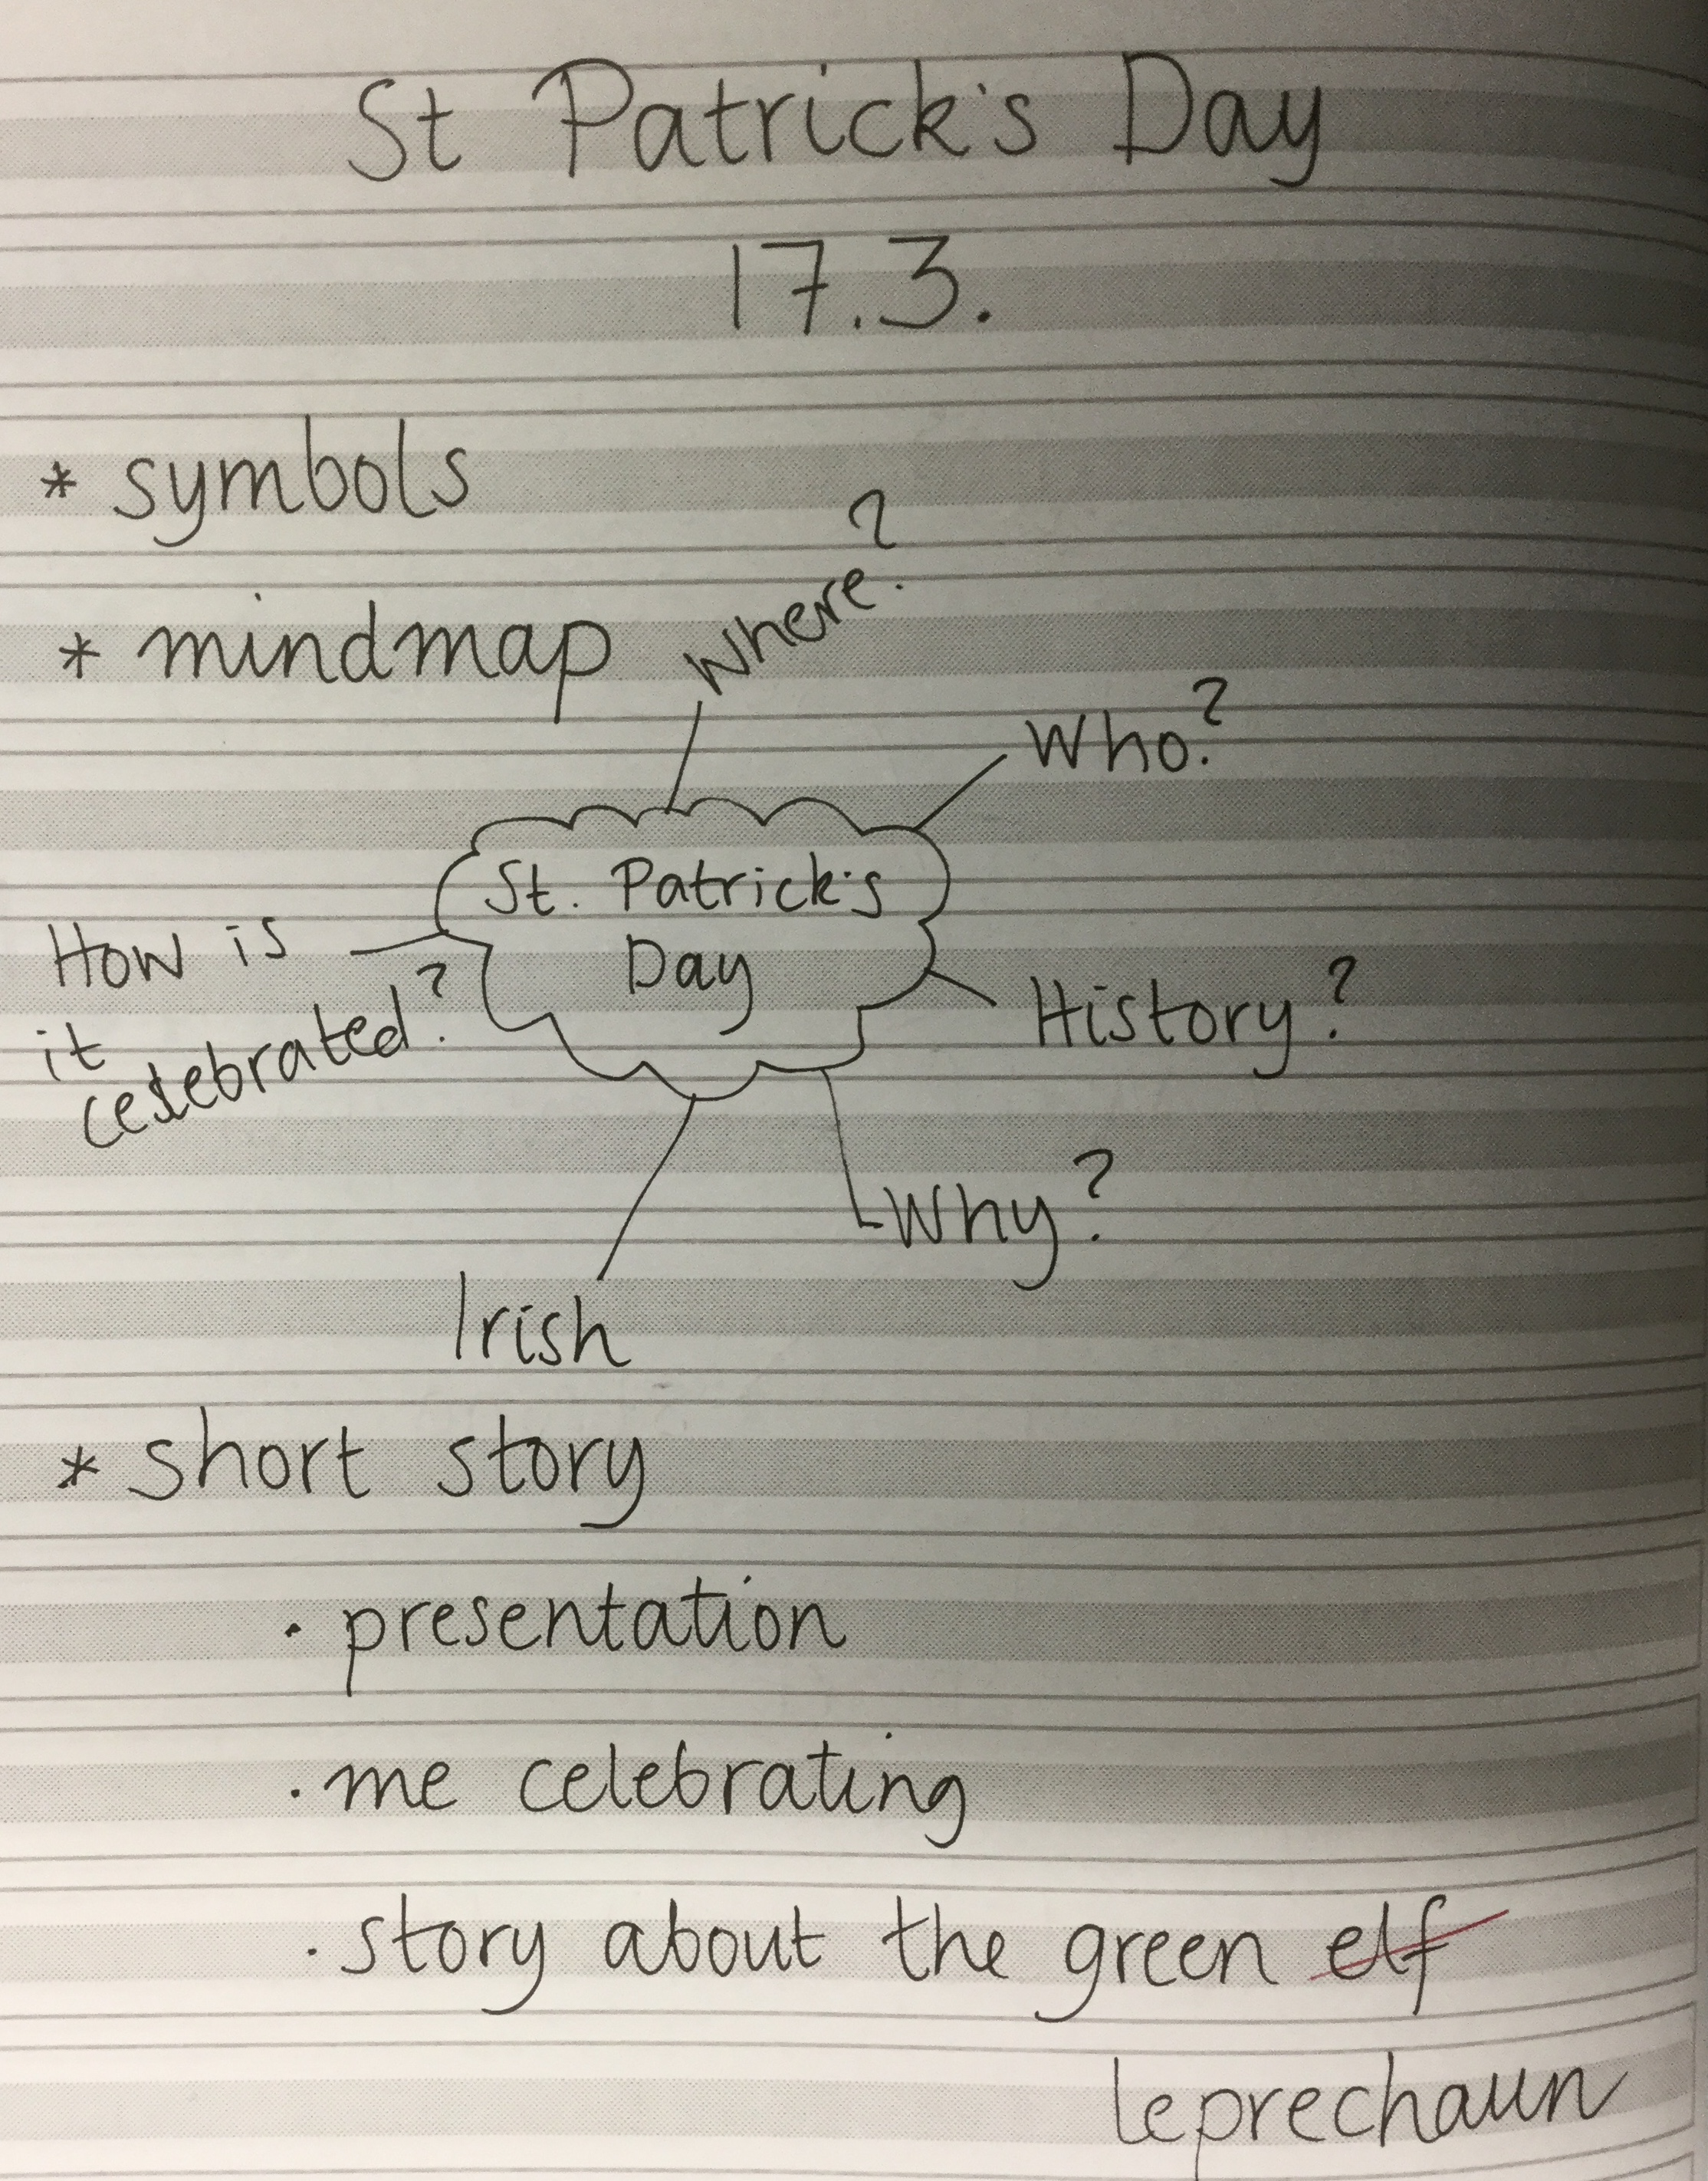 St Patrick's Day
17.3.
* symbols
* mindmap
Where?
Who?
St. Patrick's
Day
How is
it
celebrated?
History?
Why?
Irish
* short story
· presentation
· me celebrating
· story about the green elf
leprechaun